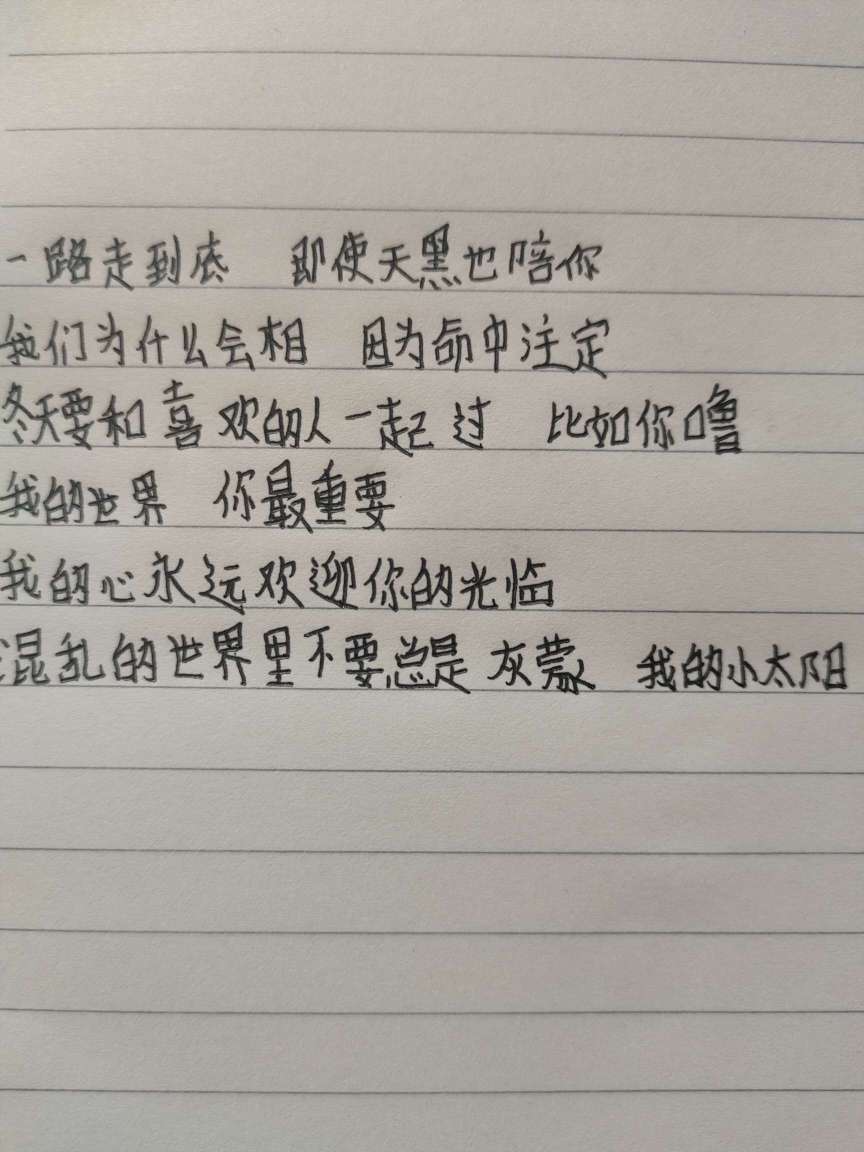 一路走到底 即使天黑也陪你
我们为什么会相 因为命中注定
冬天要和喜欢的人一起过 比如你噜
我的世界 你最重要
我的心永远欢迎你的光临
混乱的世界里不要总是灰蒙 我的小太阳